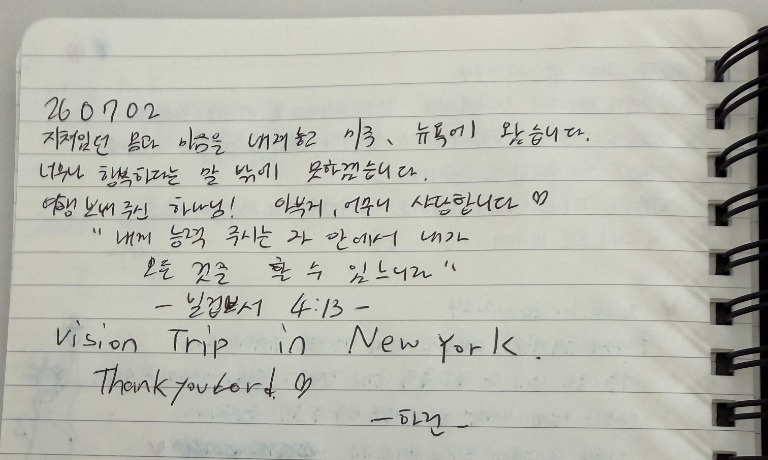 260702
지쳐있던 몸과 마음을 내려놓고 미국, 뉴욕에 왔습니다.
너무나 행복하다는 말 밖에 못하겠습니다.
여행 보내주신 하나님! 아버지, 어머니 사랑합니다 ♡
"내게 능력 주시는 자 안에서 내가
모든 것을 할 수 있느니라"
- 빌립보서 4:13 -
Vision Trip in New York.
Thank you Lord! ♡